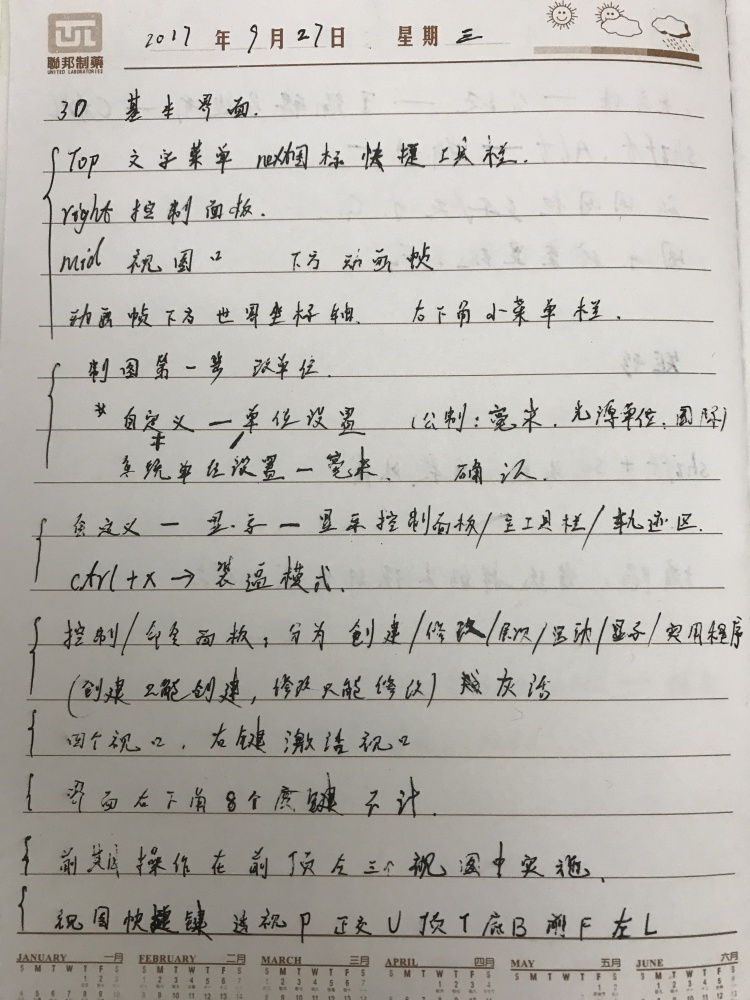 聯邦制藥
UNITED LABORATORIES
2017 年 9 月 27 日 星期 三
3D 基本界面.
Top 文字菜单 next图标快捷工具栏.
right 控制面板.
mid 视图口 下方动画帧
动画帧下方世界坐标轴. 右下角小菜单栏.
制图第一步 改单位.
* 自定义 — 单位设置 (公制:毫米. 光源单位:国际)
系统单位设置 — 毫米. 确认.
自定义 — 显示 — 显示控制面板/主工具栏/轨迹区.
ctrl+x → 装逼模式.
控制/命令面板:分为 创建/修改/层次/运动/显示/实用程序
(创建只能创建, 修改只能修改) 灰活
四个视口. 右键激活视口
界面右下角8个废键 不计.
前期操作在前顶左三个视图中实施.
视图快捷键 透视P 正交U 顶T 底B 前F 左L
JANUARY 一月 FEBRUARY 二月 MARCH 三月 APRIL 四月 MAY 五月 JUNE 六月
S M T W T F S S M T W T F S S M T W T F S S M T W T F S S M T W T F S S M T W T F S